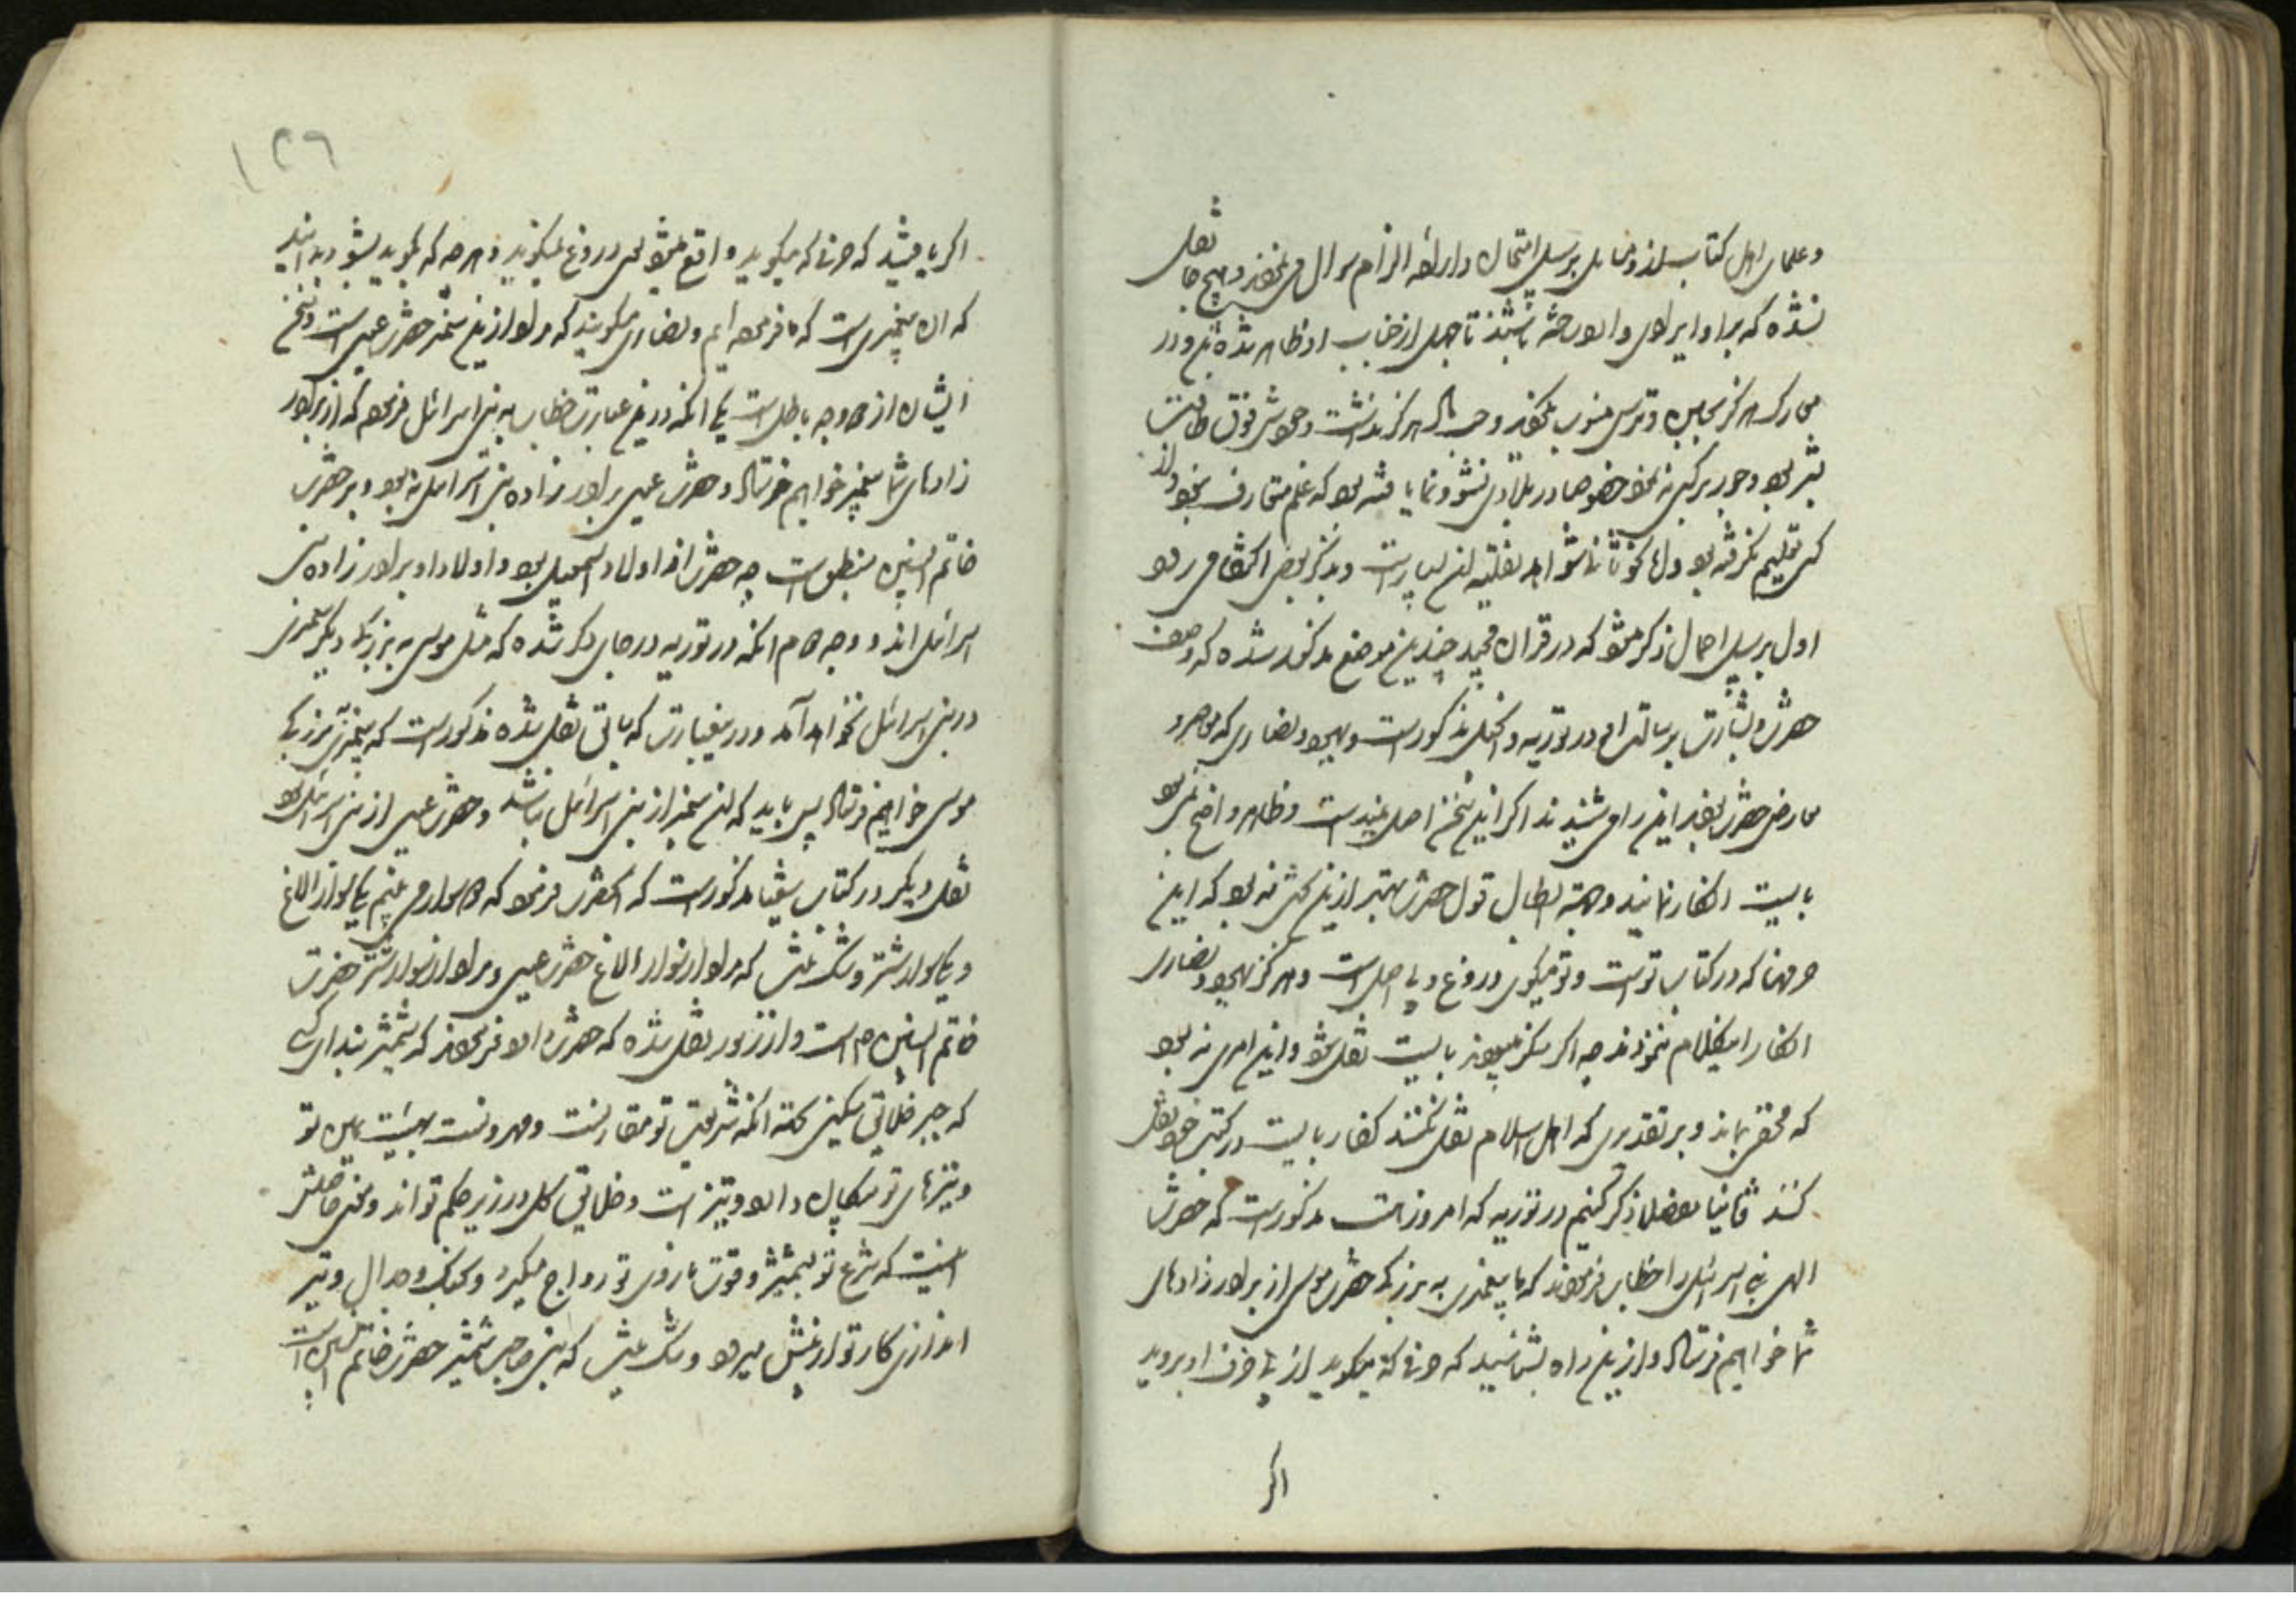 و علمای اهل کتاب از وی مسایل بر سبیل امتحان و اراده الزام سوال می نمودند و هیچ جا نقل
نشده که براو ایرادی وارد ساخته باشند تا جهل از جناب او ظاهر شده باشد و در
هرگز بجبن و ترس منسوب نکردند و هرگز نداشت و جودش فوق طاقت
بشر بود و جور بر کسی نه نمود خصوصا در بلادی نشو و نما یافته بود که علم متعارف نبود و از
کسی تعلیم نگرفته بود و اما ثانیا شواهد نقلیه آن بسیار است و بذکر بعضی اکتفا می رود
اول بر سبیل اجمال ذکر میشود که در قرآن مجید چندین موضع مذکور شده که وصف
حضرت و بشارت برسالت او در توریه و انجیل مذکور است و یهود و نصاری که
معارض حضرت بودند این را می شنیدند اگر این سخن اصل نمیداشت و ظاهر و واضح نمی بود
بایست انکار نمایند و جهة ابطال قول حضرت بهتر ازین بحثی نه بود که این
حرفها که در کتاب تو است و تو میگوئی دروغ و بی اصل است و هرگز یهود و نصاری
انکار این کلام ننمودند چه اگر منکر میبودند بایست نقل شود و این امری نه بود
که مخفی بماند و بر تقدیری که اهل اسلام نقل نکنند کفار بایست در کتب خود نقل
کنند ثانیا مفصل ذکر کنیم در توریه که امروز هست مذکور است که حضرت
الهی بنی اسرائیل را خطاب فرمودند که ما پیغمبری به بزرگی حضرت موسی از برادر زادهای
شما خواهیم فرستاد و ازین راه بشناسید که حرفی که میگوید از پی حرف او بروید
اگر
۱۲۶
اگر یافتید که حرفی که میگوید واقع میشود پس دروغ نمیگوید و هر چه که بگوید بشنوید و بدانید
که آن پیغمبری است که ما فرموده ایم و نصاری میگویند که مراد ازین پیغمبر حضرت عیسی است و سخن
ایشان از دو وجه باطل است یکی آنکه درین عبارت خطاب به بنی اسرائیل فرموده که از برادر
زادهای شما پیغمبر خواهیم فرستاد و حضرت عیسی برادر زاده بنی اسرائیل نه بود و بر حضرت
خاتم النبیین منطبق است چه حضرت از اولاد اسمعیل بود و اولاد او برادر زاده بنی
اسرائیل اند و وجه دوم آنکه در توریه در جای دیگر شده که مثل موسی به بزرگی دیگر پیغمبری
در بنی اسرائیل نخواهد آمد و درین عبارت که سابق نقل شده مذکور است که پیغمبری به بزرگی
موسی خواهیم فرستاد پس باید که این پیغمبر از بنی اسرائیل نباشد و حضرت عیسی از بنی اسرائیل بود
نقل دیگر در کتاب شعیا مذکور است که آنحضرت فرمود که دو سوار می بینم یکی سوار الاغ
و یکی سوار شتر و شک نیست که مراد از سوار الاغ حضرت عیسی و مراد از سوار شتر حضرت
خاتم النبیین ص است و از زبور نقل شده که حضرت داود فرمودند که شمشیر بند ای کسی
که جبر خلایق میکنی بجهة آنکه شریعت تو مقارنست و مقرونست بهیبت یمین تو
و تیزهای تو و تیز است و خلایق کل در زیر حکم تواند و معنی حاصلش
اینست که شرع تو بشمشیر و قوت بازوی تو رواج میگیرد و بجنگ و جدال و تیر
اندازی کار تو از پیش میرود و شک نیست که نبی صاحب شمشیر حضرت خاتم النبیین است